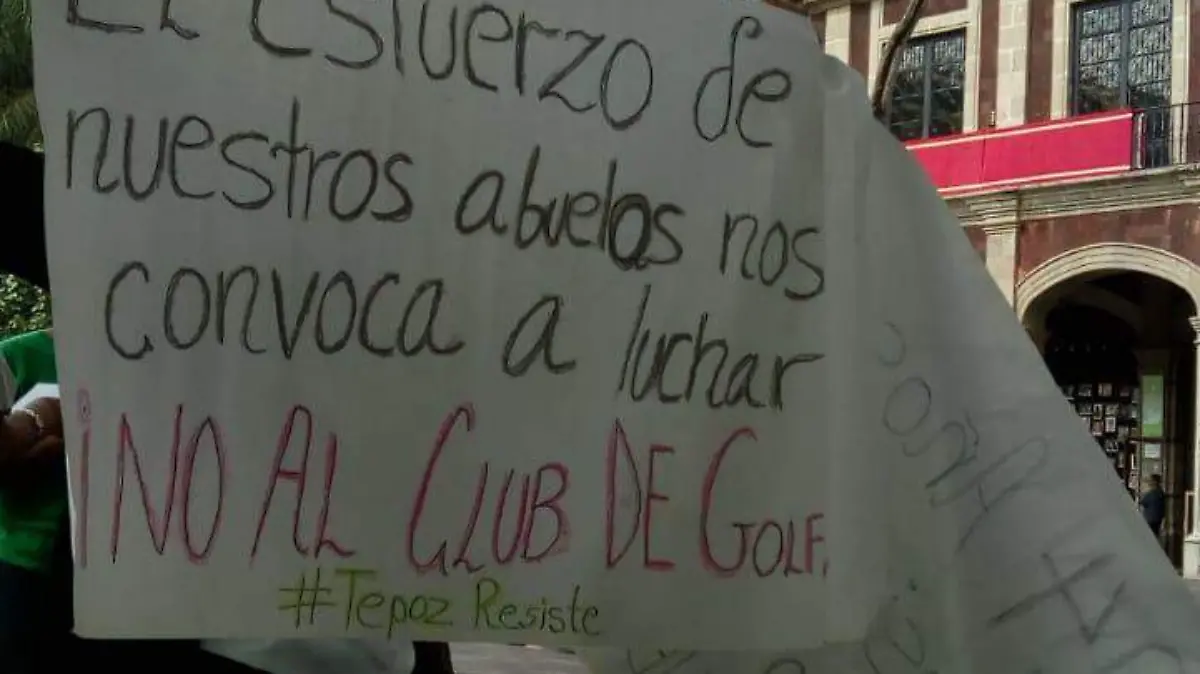 El Esfuerzo de
nuestros abuelos nos
convoca a luchar
¡NO AL CLUB DE GOLF.
#Tepoz Resiste